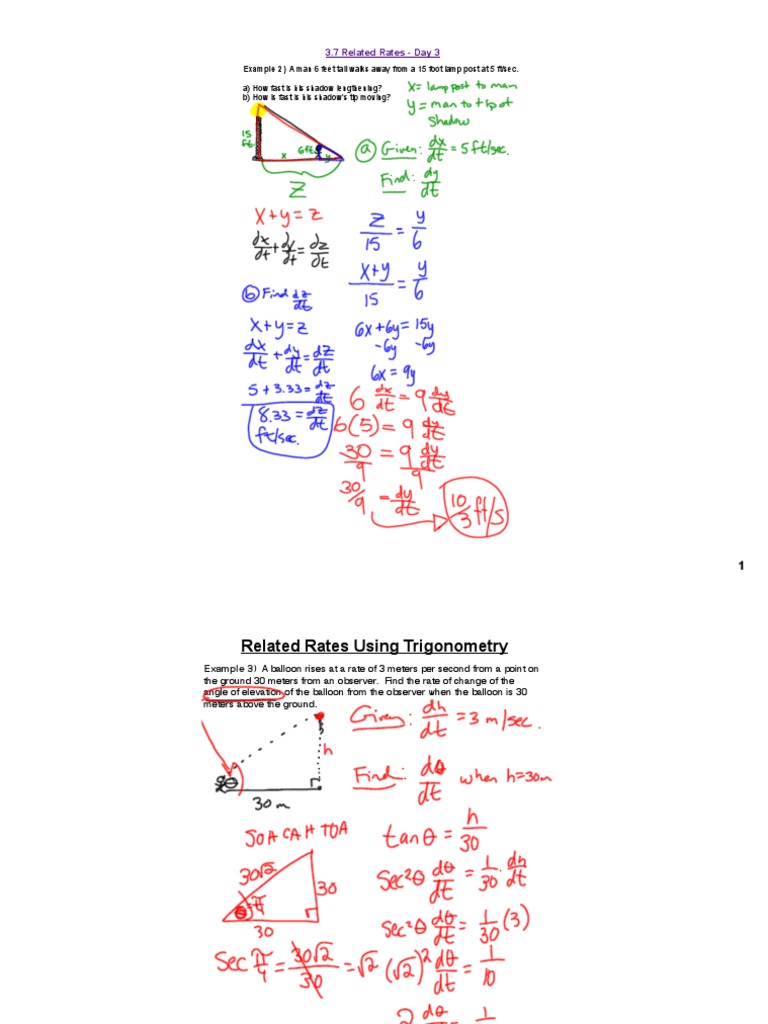 3.7 Related Rates - Day 3
Example 2) A man 6 feet tall walks away from a 15 foot lamp post at 5 ft/sec.
a) How fast is his shadow lengthening?
b) How is fast is his shadow's tip moving?
x = lamp post to man
y = man to tip of
shadow
15
ft.
6ft
x
y
z
(a) Given: dx/dt = 5 ft/sec.
Find: dy/dt
x+y = z
dx/dt + dy/dt = dz/dt
z/15 = y/6
x+y/15 = y/6
6x+6y = 15y
-6y -6y
6x = 9y
6 dx/dt = 9 dy/dt
6(5) = 9 dy/dt
30/9 = 9 dy/dt /9
30/9 = dy/dt
10/3 ft/s
(b) Find dz/dt
x+y = z
dx/dt + dy/dt = dz/dt
5 + 3.33 = dz/dt
8.33 = dz/dt
ft/sec.
1
Related Rates Using Trigonometry
Example 3) A balloon rises at a rate of 3 meters per second from a point on
the ground 30 meters from an observer. Find the rate of change of the
angle of elevation of the balloon from the observer when the balloon is 30
meters above the ground.
h
θ
30 m
Given: dh/dt = 3 m/sec.
Find: dθ/dt when h=30m
SOH CAH TOA
tan θ = h/30
30√2
30
θ π/4
30
sec²θ dθ/dt = 1/30 · dh/dt
sec²θ dθ/dt = 1/30 (3)
sec π/4 = 30√2/30 = √2
(√2)² dθ/dt = 1/10